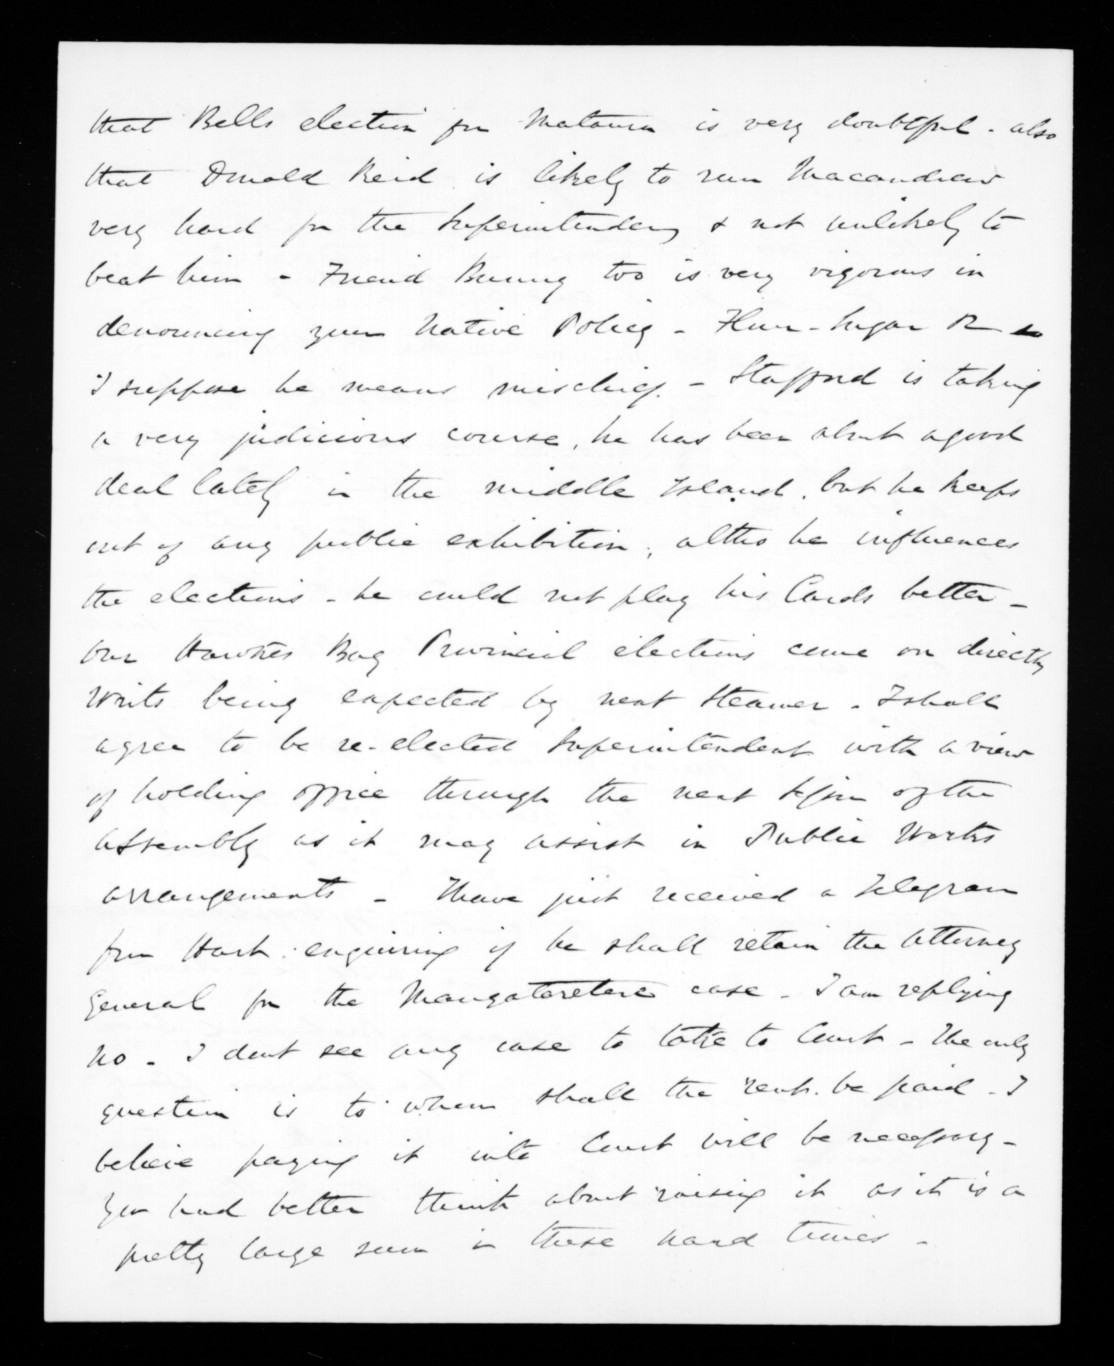 that Bells election for Mataura is very doubtful - also
that Donald Reid is likely to run Macandrew
very hard for the Superintendency & not unlikely to
beat him - Friend Bunny too is very vigorous in
denouncing your Native Policy - Flour - Sugar &c
I suppose he means mischief. - Stafford is taking
a very judicious course, he has been about a good
deal lately in the middle Island, but he keeps
out of any public exhibition, altho he influences
the elections - he could not play his Cards better -
Our Hawkes Bay Provincial elections come on directly
Writs being expected by next Steamer - I shall
agree to be re-elected Superintendent with a view
of holding office through the next session of the
Assembly as it may assist in Public Works
arrangements - I have just received a Telegram
from Hart enquiring if he shall retain the Attorney
General for the Mangateretere case - I am replying
No - I dont see any case to take to Court - The only
question is to whom shall the rent be paid - I
believe paying it into Court will be necessary -
You had better think about raising it as it is a
pretty large sum in these hard times -